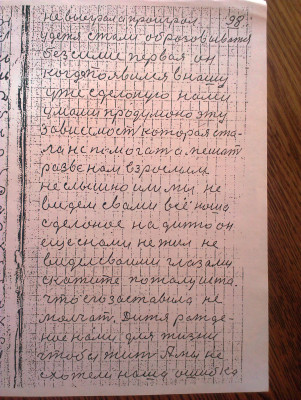 не выиграл а проиграл 98.
у детя стали образовыватся
безсилие первая он
когда появился в нашу
уже сделоную нами
умами продумоно эту
зависимост которая ста-
ла не помогат а мешат
разве нам взрослым
не слышно или мы не
видем с вами всё наше
сделоное на дитю он
еще снами не жил не
видел своими глазами
скажите пожалуйста
что его заставила не
молчат. Дитя рожде-
ное нами для жизни
чтобы жит А мы не
схотели наша ошибка